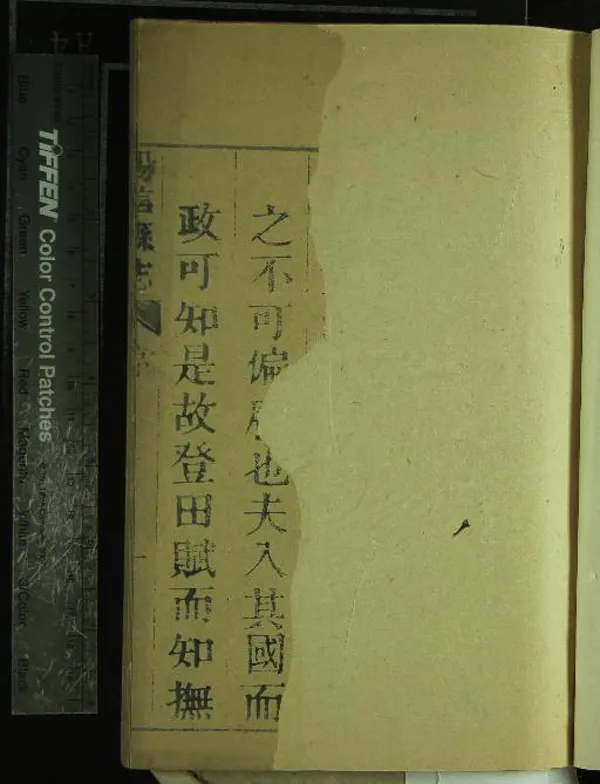 之不可偏 也夫入其國而
政可知是故登田賦而知撫
陽信縣志 序
一
TIFFEN Color Control Patches
Blue Cyan Green Yellow Red Magenta White 3/Color Black